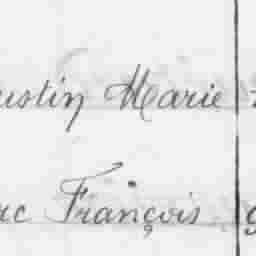 ustin Marie
rc François